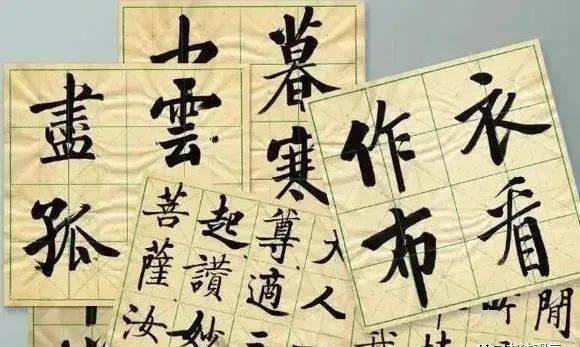 盡
孤
雲
暮
寒
衣看
作布
大人
尊適二
起讚妙
菩薩汝
閒